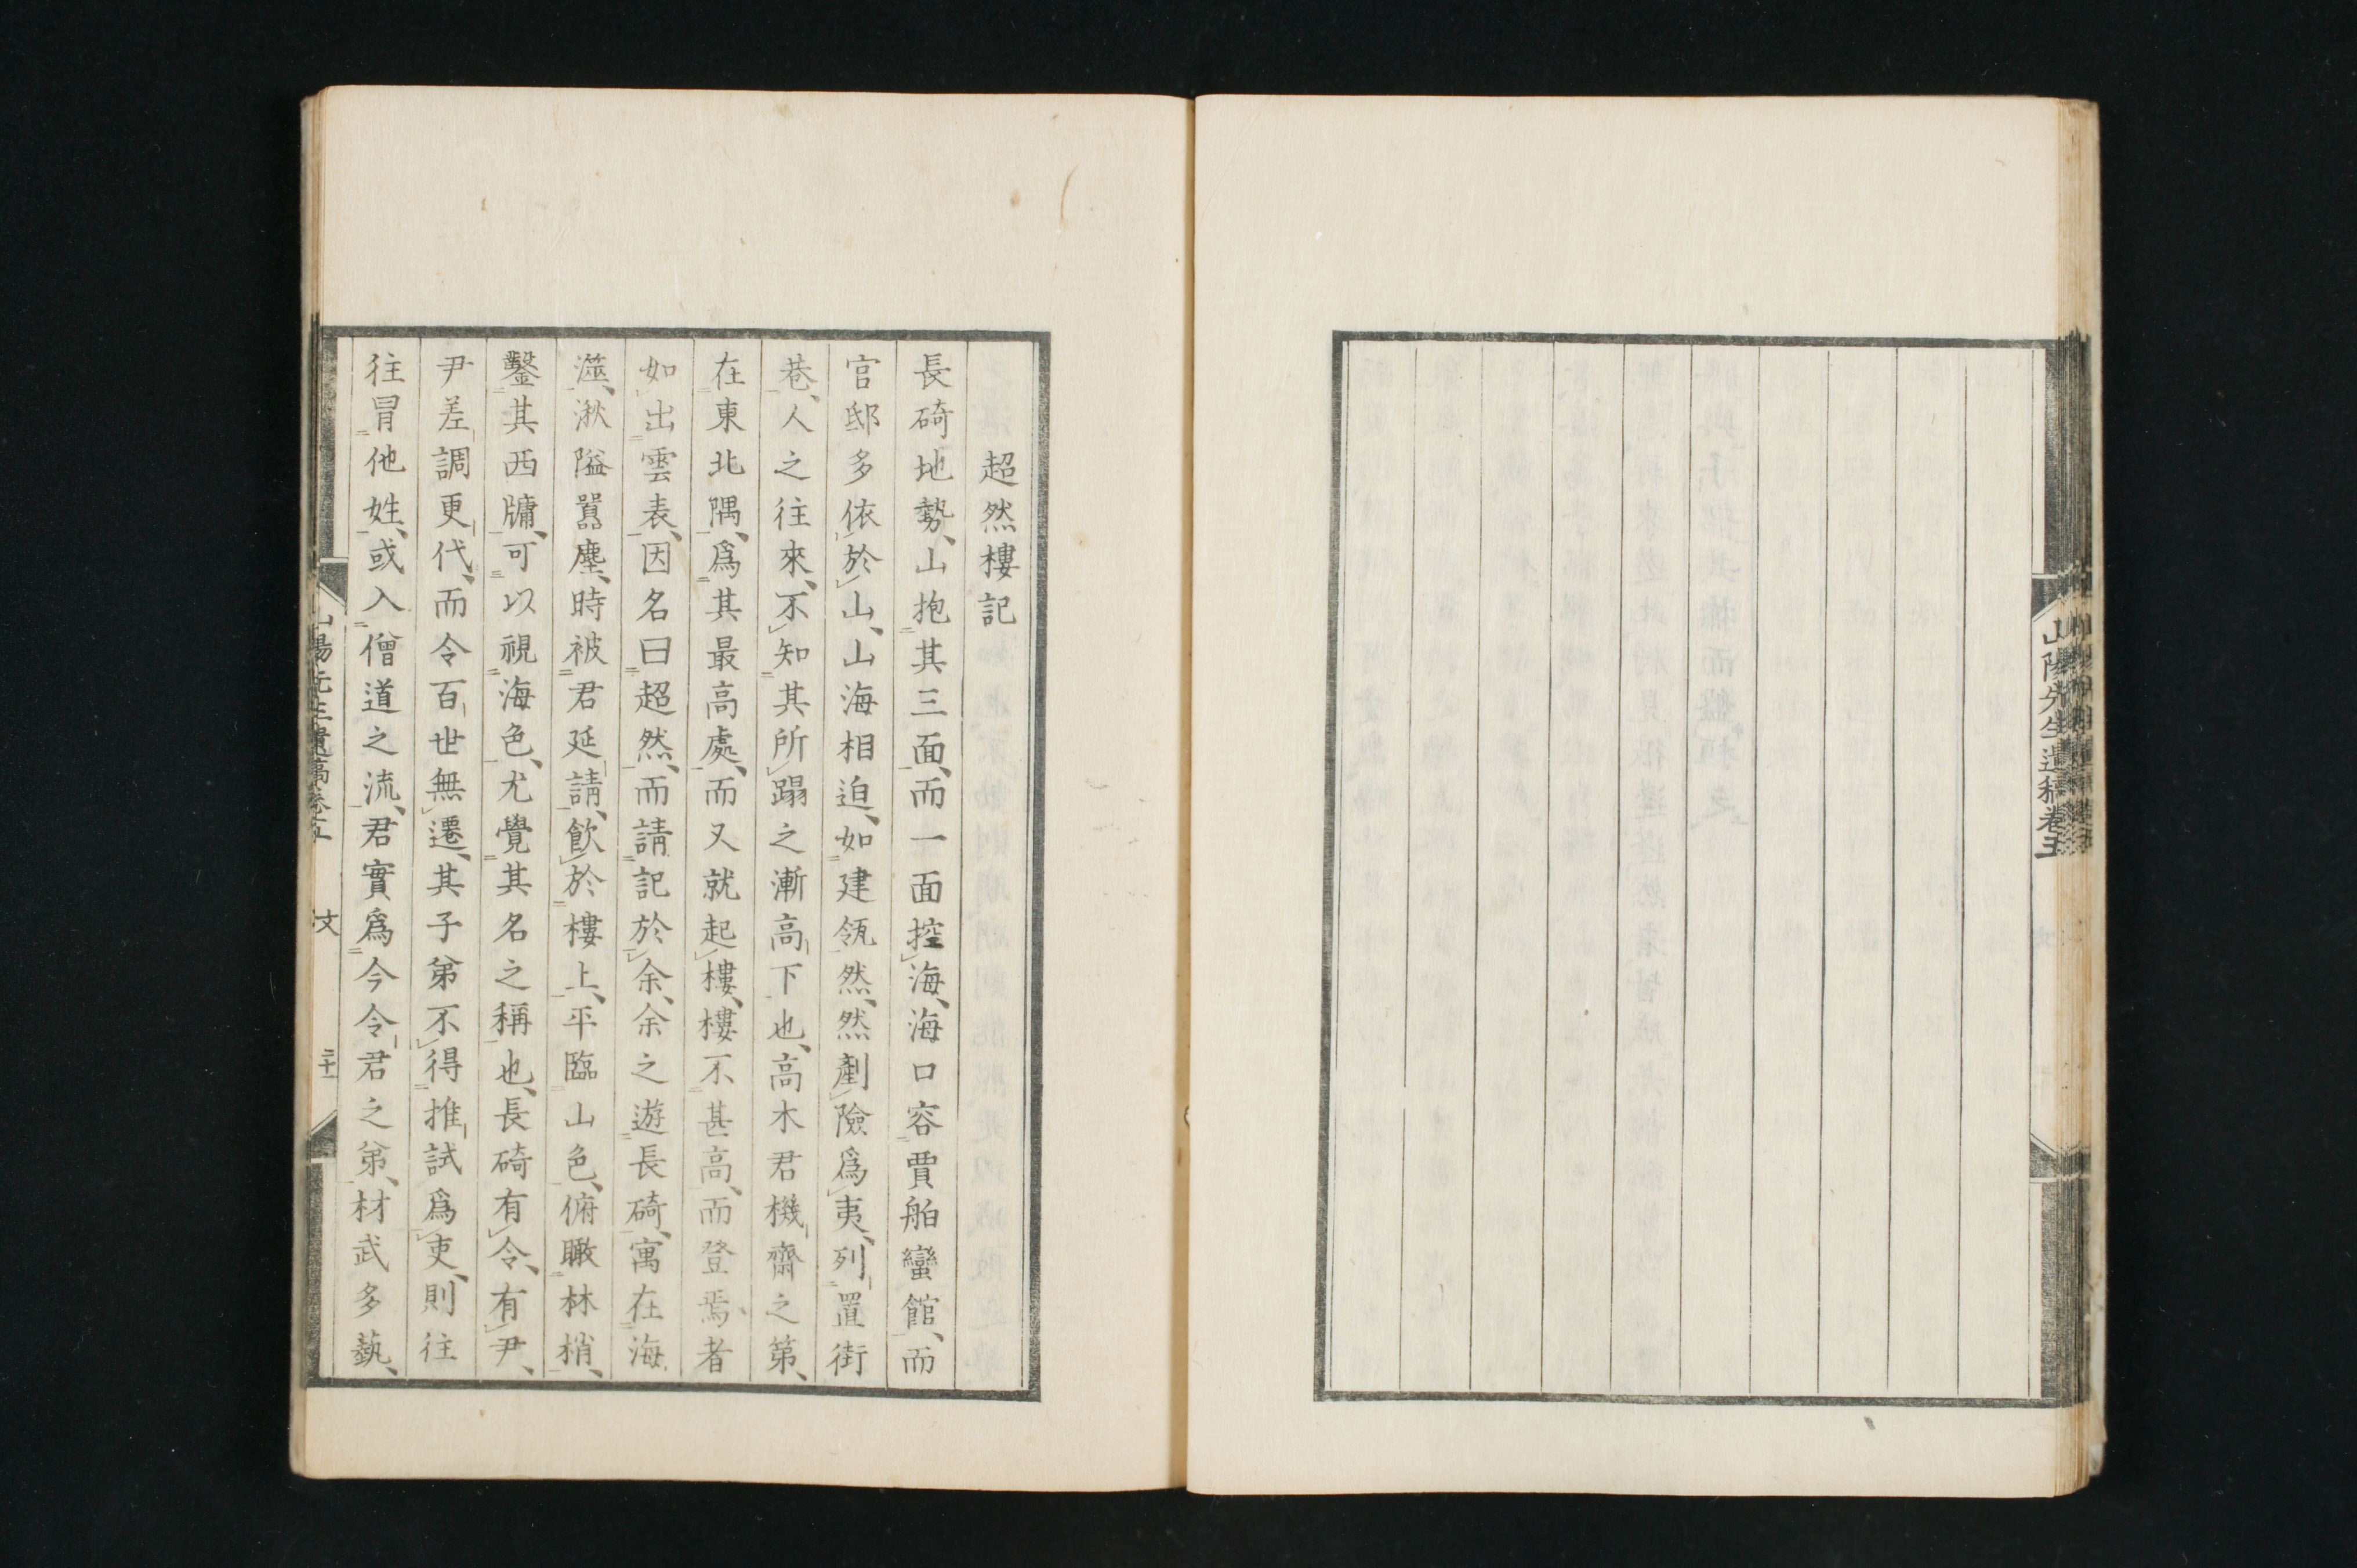 山陽先生遺稿卷五
超然樓記
長碕地勢、山抱其三面、而一面控海、海口容賈舶蠻館、而
官邸多依於山、山海相迫、如建瓴然、然剷險爲夷、列置街
巷、人之往來、不知其所蹋之漸高下也、高木君機齋之第、
在東北隅、爲其最高處、而又就起樓、樓不甚高、而登焉者
如出雲表、因名曰超然、而請記於余、余之遊長碕、寓在海
澨、湫隘囂塵、時被君延請、飲於樓上、平臨山色、俯瞰林梢、
鑿其西牖、可以視海色、尤覺其名之稱也、長碕有令、有尹、
尹差調更代、而令百世無遷、其子弟不得推試爲吏、則往
往冒他姓、或入僧道之流、君實爲今令君之弟、材武多藝、
山陽先生遺稿卷五 文 二十一